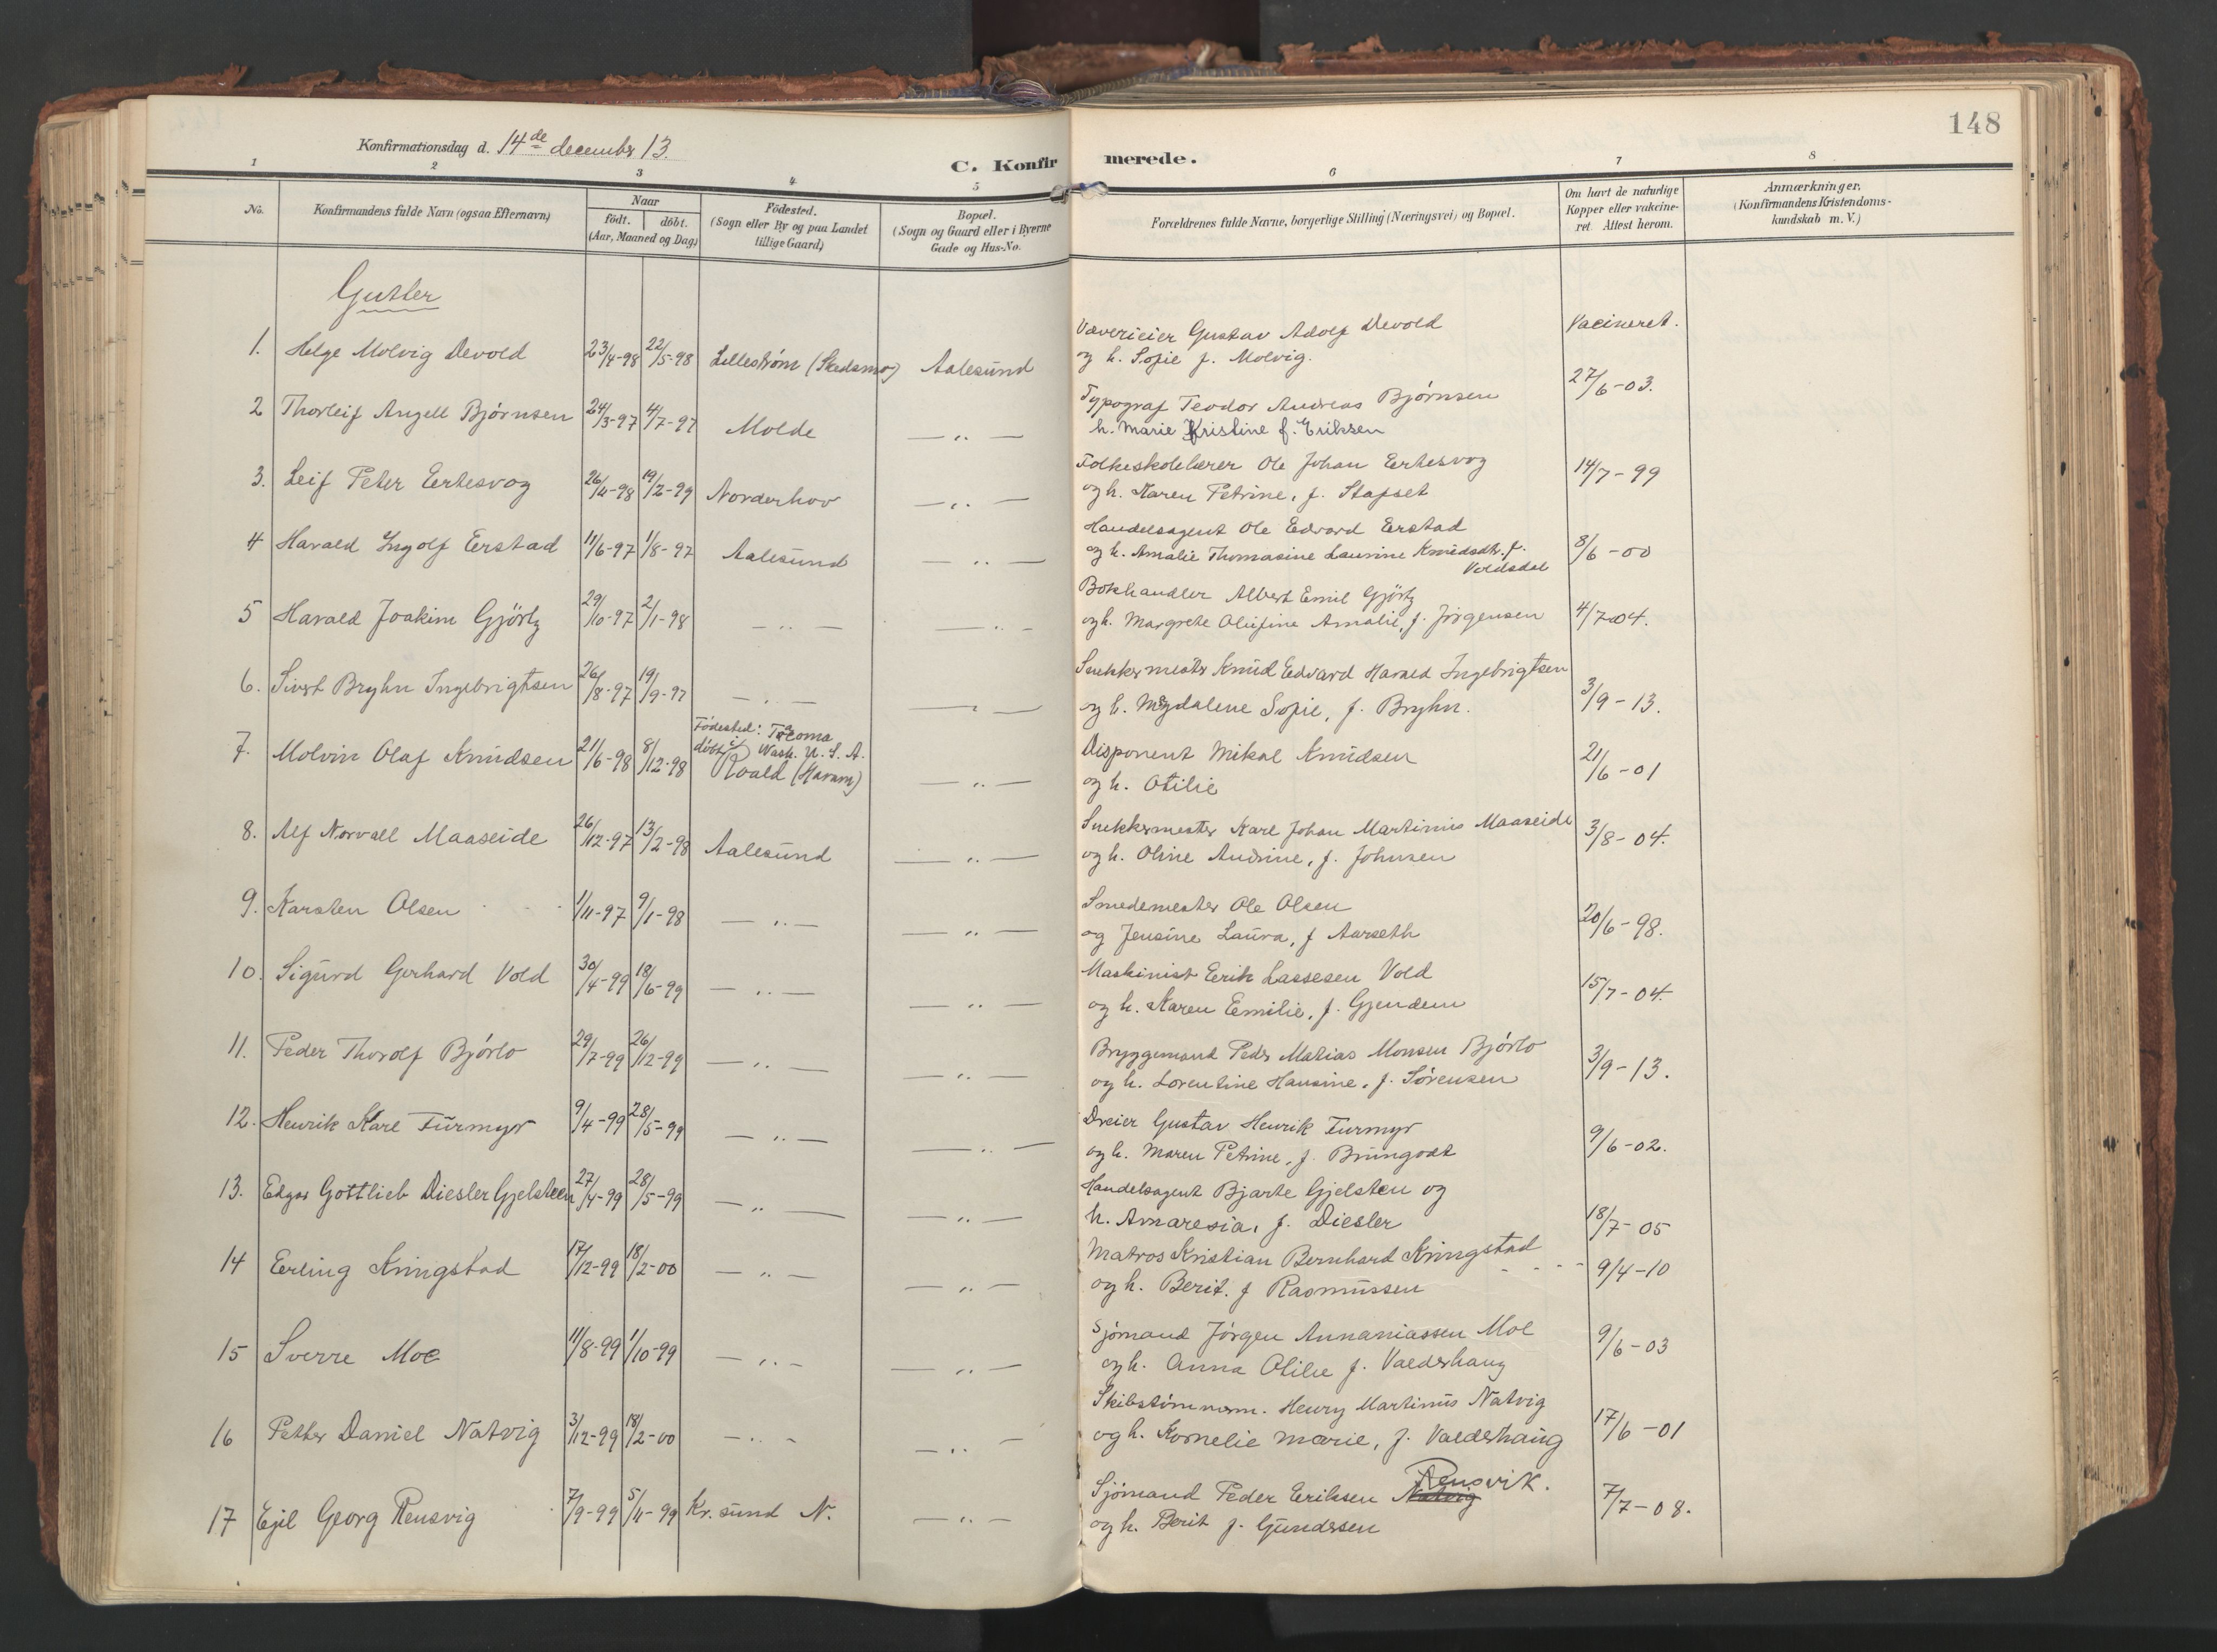 148
Konfirmationsdag d. 14de december 13.
C. Konfirmerede.
1 2 3 4 5 6 7 8
No. Konfirmandens fulde Navn (ogsaa Efternavn) Naar født. døbt. (Aar, Maaned og Dag)
Fødested. (Sogn eller By og paa Landet tillige Gaard)
Bopæl. (Sogn og Gaard eller i Byerne Gade og Hus-No.
Forældrenes fulde Navne, borgerlige Stilling (Næringsvei) og Bopæl.
Om havt de naturlige Kopper eller vakcineret. Attest herom.
Anmærkninger. (Konfirmandens Kristendomskundskab m. V.)
Gutter
1. Helge Molvig Devold 23/4-98 22/5-98 Lillestrøm (Skedsmo) Aalesund Væverieier Gustav Adolf Devold Vacineret.
og h. Sofie f. Molvig.
2 Thorleif Angell Bjørnsen 24/3-97 4/7-97 Molde — „ — Typograf Teodor Andreas Bjørnsen 27/6-03.
h. Marie Kristine f. Eriksen
3. Leif Peter Ertesvog 26/11-98 19/2-99 Norderhov — „ — Folkeskolelærer Ole Johan Ertesvog 14/7-99
og h. Karen Petrine, f. Stafset
4 Harald Ingolf Erstad 11/6-97 1/8-97 Aalesund — „ — Handelsagent Ole Edvard Erstad 8/6-00
og h. Amalie Thomasine Laurine Knudsdtr. f.
Voldsdal
5 Harald Joakim Gjørtz 29/10-97 2/1-98 — „ — — „ — Bokhandler Albert Emil Gjørtz 4/7-04.
og h. Margrete Olufine Amalie, f. Jørgensen
6. Sivert Bryhn Ingebrigtsen 26/8-97 19/9-97 — „ — — „ — Snekkermester Knud Edvard Harald Ingebrigtsen 3/9-13.
og h. Magdalene Sofie, f. Bryhn.
7. Molvin Olaf Knudsen 21/6-98 8/12-98 Fødested: Tacoma
Wash. U. S. A.
døbt i Roald (Haram) — „ — Disponent Mikal Knudsen 21/6-01
og h. Otilie
8. Alf Norvall Maaseide 26/12-97 13/2-98 Aalesund — „ — Snekkermester Karl Johan Martinus Maaseide 3/8-04.
og h. Oline Andrine, f. Johnsen
9. Karsten Olsen 1/11-97 9/1-98 — „ — — „ — Smedemester Ole Olsen 20/6-98.
og Jensine Laura, f Aarseth
10. Sigurd Gerhard Vold 30/4-99 18/6-99 — „ — — „ — Maskinist Erik Lassesen Vold 15/7-04.
og h. Karen Emilie, f. Gjendem
11. Peder Thorolf Bjørlo 29/7-99 26/12-99 — „ — — „ — Bryggemand Peder Matias Monsen Bjørlo 3/9-13.
og h. Lorentine Hansine, f. Sørensen
12. Henrik Karl Furmyr 9/4-99 28/5-99 — „ — — „ — Dreier Gustav Henrik Furmyr 9/6-02.
og h. Maren Petrine, f. Brungodt
13. Edgar Gottlieb Diesler Gjelsteen 27/4-99 28/5-99 — „ — — „ — Handelsagent Bjarte Gjelsten og 18/7-05
h. Amaresia, f. Diesler
14 Erling Kringstad 17/12-99 18/2-00 — „ — — „ — Matros Kristian Bernhard Kringstad 9/4-10
og h. Berit. f Rasmussen
15 Sverre Moe 11/8-99 1/10-99 — „ — — „ — Sjømand Jørgen Annaniassen Moe 9/6-03
og h. Anna Otilie f. Valderhaug
16 Petter Daniel Natvig 3/12-99 18/2-00 — „ — — „ — Skibstømmerm. Henry Martinus Natvig 17/6-01
og h. Kornelie Marie, f. Valderhaug
17 Ejil Georg Rensvig 7/9-99 5/11-99 Kr. sund N. — „ — Sjømand Peder Eriksen Natvig Rensvik. 7/7-08.
og h. Berit f. Gundersen